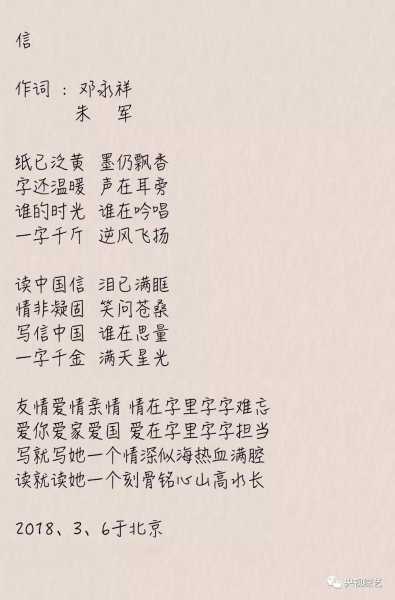 信
作词 : 邓永祥
朱 军
纸已泛黄 墨仍飘香
字还温暖 声在耳旁
谁的时光 谁在吟唱
一字千斤 逆风飞扬
读中国信 泪已满眶
情非凝固 笑问苍桑
写信中国 谁在思量
一字千金 满天星光
友情爱情亲情 情在字里字字难忘
爱你爱家爱国 爱在字里字字担当
写就写她一个情深似海热血满腔
读就读她一个刻骨铭心山高水长
2018、3、6于北京
央视综艺